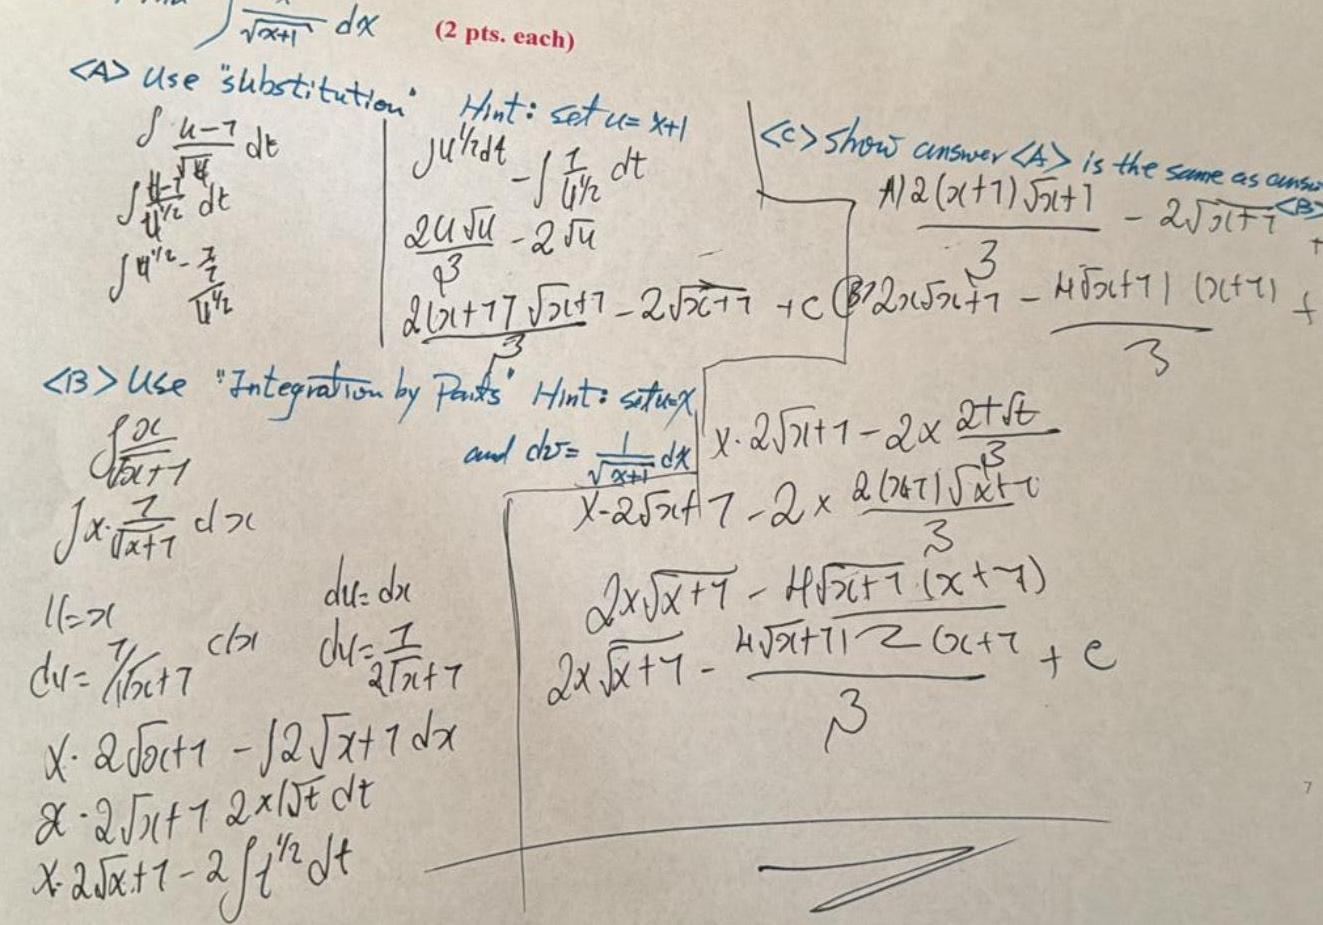 ∫ x/√(x+1) dx (2 pts. each)
<A> Use "substitution" Hint: set u = x+1
∫ (u-1)/√u dt
∫ (u-1)/u^(1/2) dt
∫ u^(1/2) - 1/u^(1/2)
∫ u^(1/2) dt - ∫ 1/u^(1/2) dt
2u√u/3 - 2√u
2(x+1)√(x+1)/3 - 2√(x+1) + c
<C> Show answer <A> is the same as <B>
A) 2(x+1)√(x+1)/3 - 2√(x+1) +
B) 2x√(x+1) - 4√(x+1) (x+1)/3 +
<B> Use "Integration by Parts" Hint: set u=x
and dv = 1/√(x+1) dx
∫ x/√(x+1)
∫ x · 1/√(x+1) dx
u = x du = dx
dv = 1/√(x+1) dx dv = 1/(2√(x+1))
x · 2√(x+1) - ∫ 2√(x+1) dx
x · 2√(x+1) 2x∫√t dt
x · 2√(x+1) - 2∫ t^(1/2) dt
x · 2√(x+1) - 2 × 2t√t/3
x · 2√(x+1) - 2 × 2(x+1)√(x+1)/3
2x√(x+1) - 4√(x+1) · (x+1)
2x√(x+1) - 4√(x+1) (x+1/3 + c
7